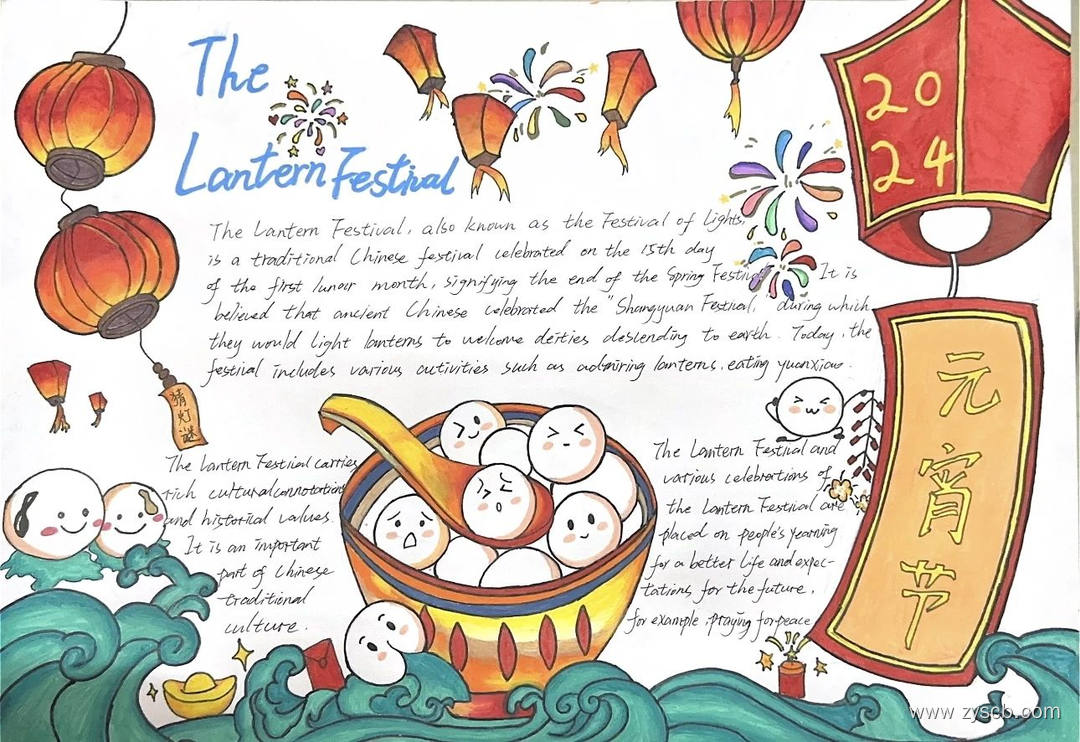 The
Lantern Festival
2024
The Lantern Festival, also known as the Festival of Lights,
is a traditional Chinese festival celebrated on the 15th day
of the first lunar month, signifying the end of the Spring Festival. It is
believed that ancient Chinese celebrated the "Shangyuan Festival," during which
they would light lanterns to welcome deities descending to earth. Today, the
festival includes various activities such as admiring lanterns, eating yuanxiao.
元宵节
猜灯谜
The Lantern Festival carries
rich cultural connotations
and historical values.
It is an important
part of Chinese
traditional
culture.
The Lantern Festival and
various celebrations of
the Lantern Festival are
placed on people's yearning
for a better life and expec-
tations for the future,
for example, praying for peace
www.zyscb.com